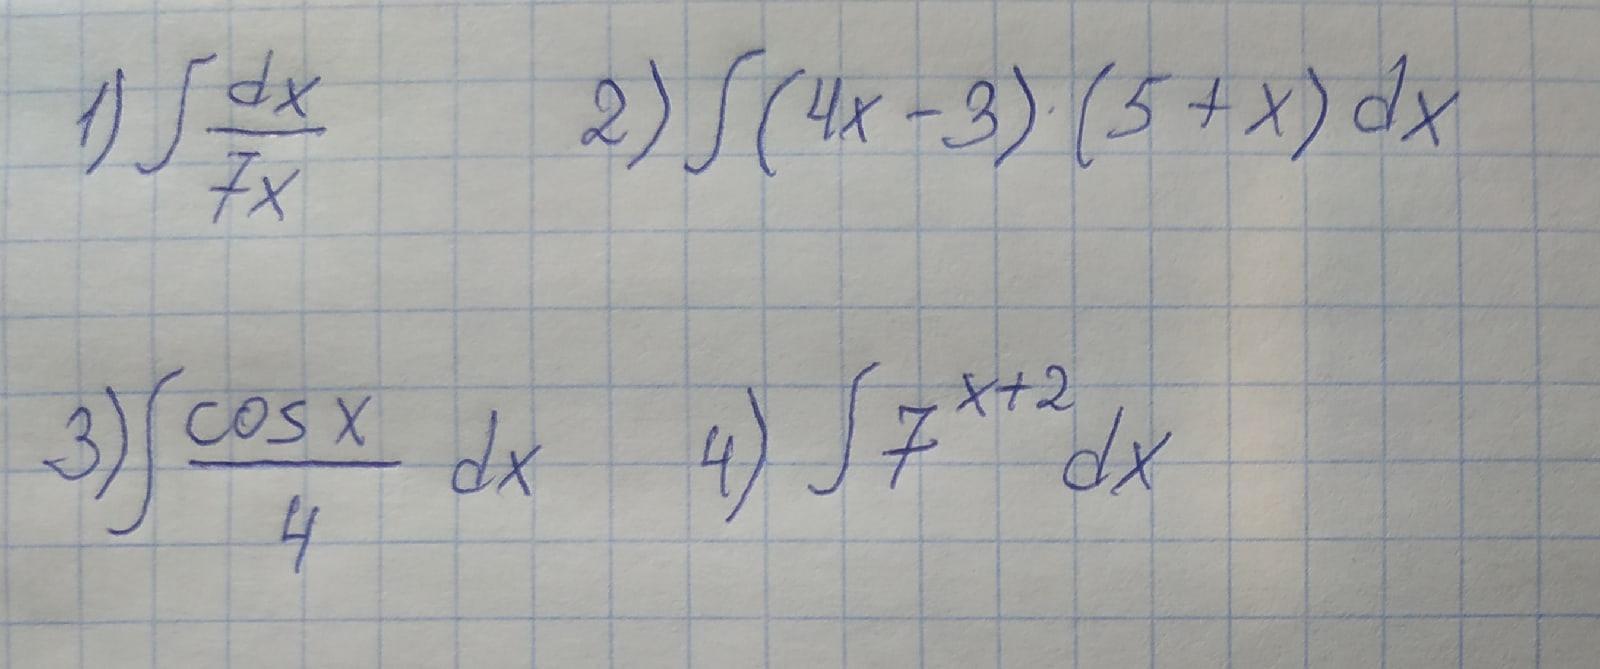 1) ∫ dx/7x 2) ∫(4x-3)·(5+x)dx
3) ∫ cosx/4 dx 4) ∫7^(x+2)dx